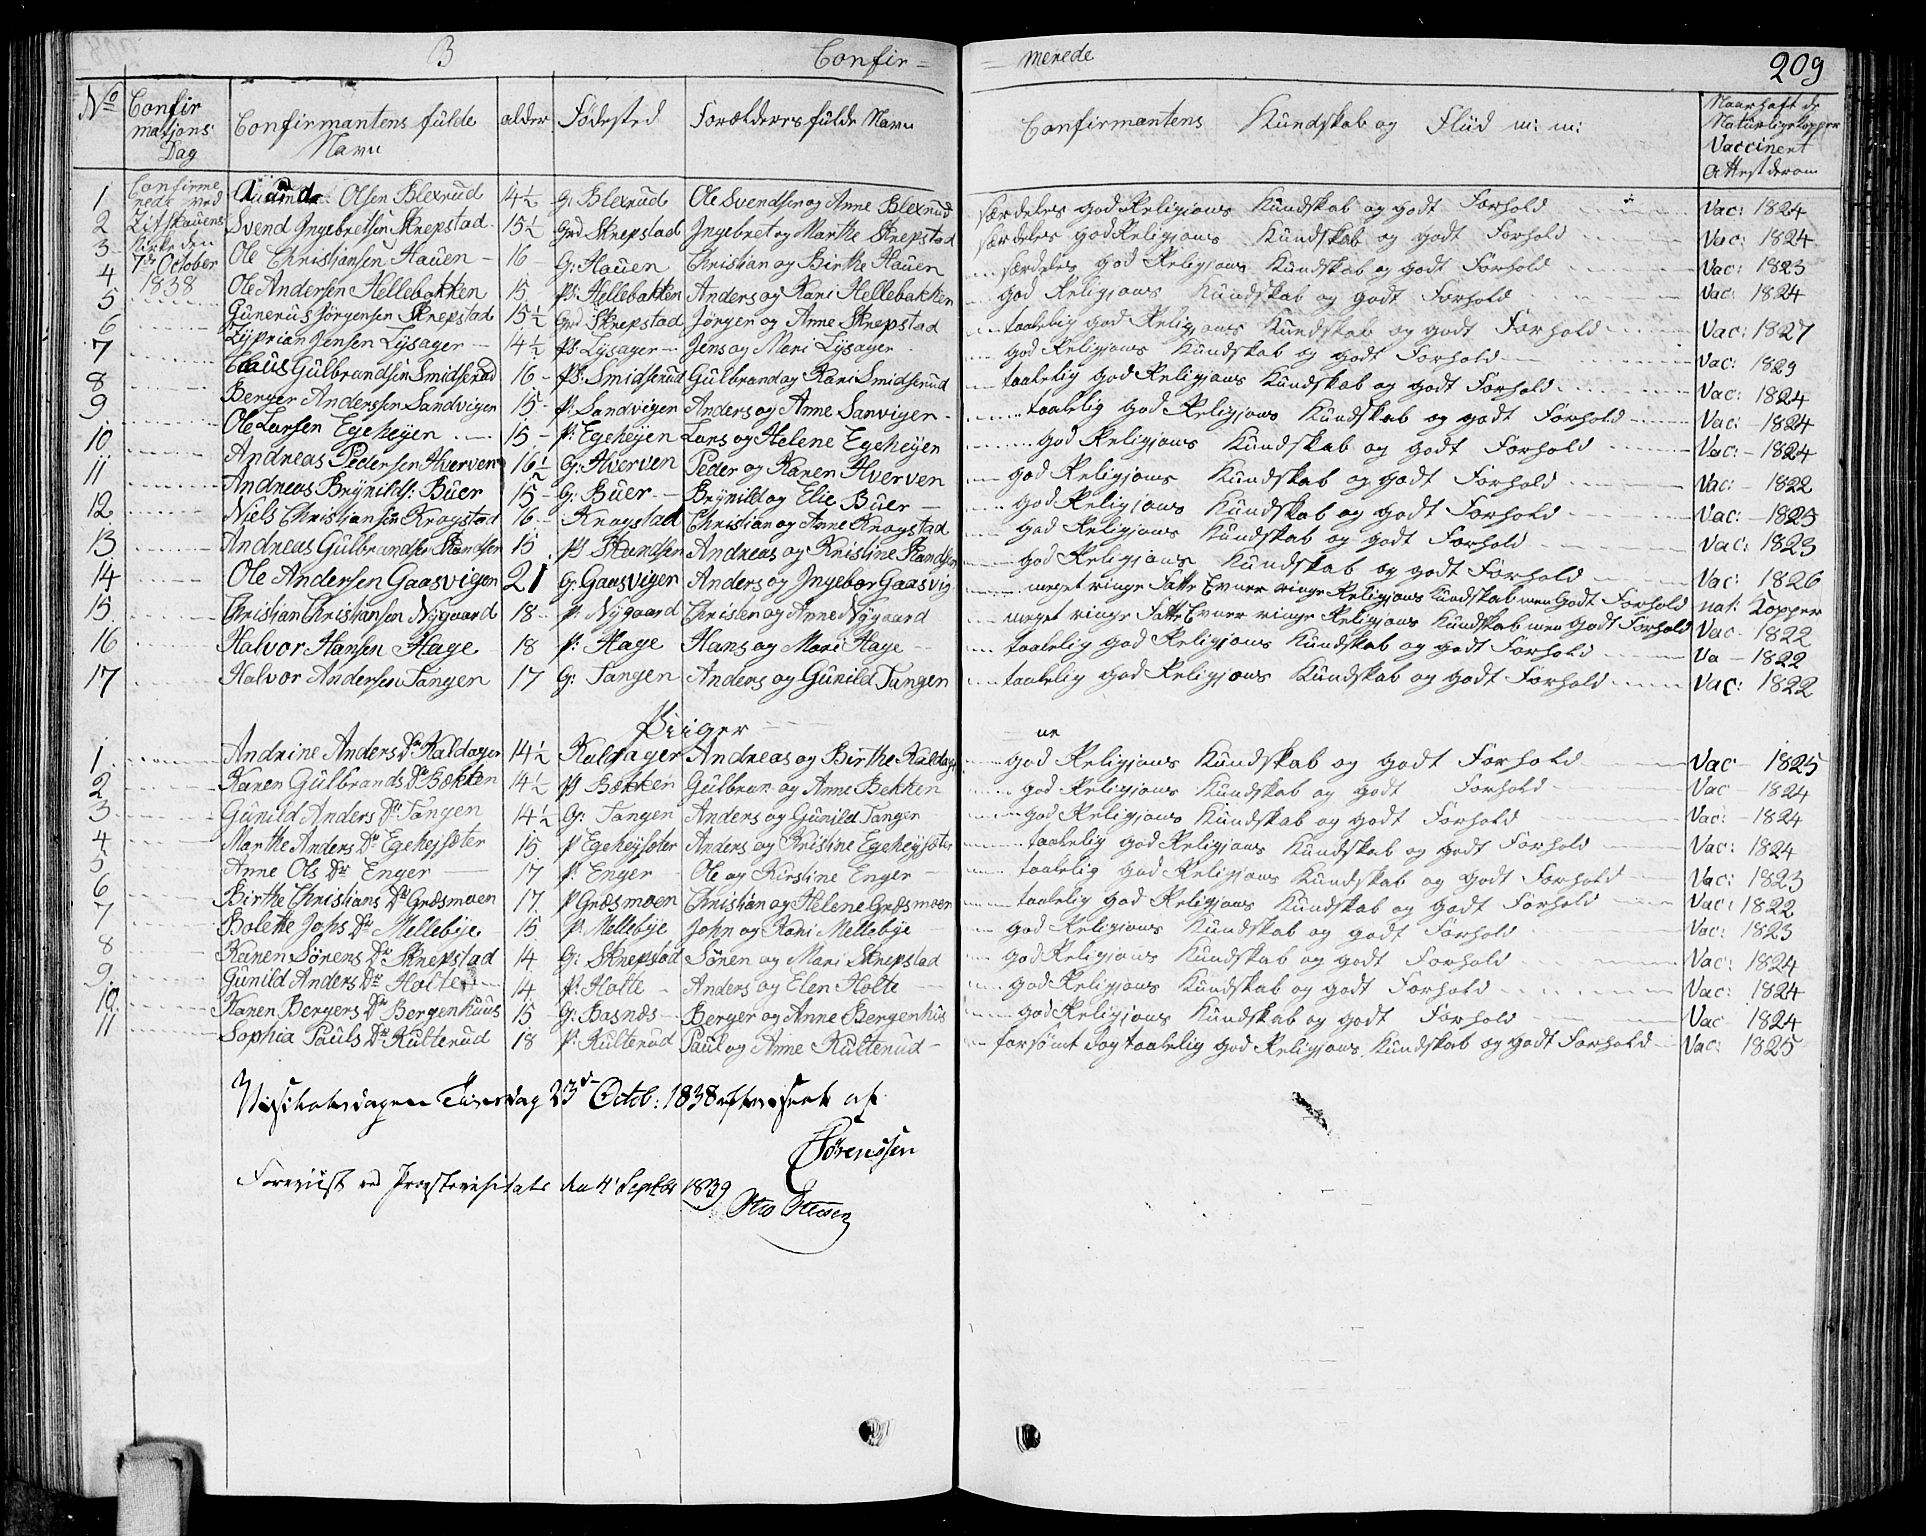 3 Confir= = merede 209
No Confirmatjons Dag Confirmantens fulde Navn alder Fødested Forældrers fulde Navn Confirmantens Kundskab og Fliid m: m: Naar haft de Naturlige Kopper Vaccinert Attest derom
Confirmerede ved Kirke den 7de October 1838
1 Olsen Blexrud 14½ G: Blexrud Ole Svendsen og Anne Blexrud særdeles god Religjons Kundskab og godt Forhold Vac: 1824
2 Svend Jngebretsen Sknepstad 15½ Grd Sknepstad Jngebret og Marthe Sknepstad særdeles god Religjons Kundskab og godt Forhold Vac: 1824
3 Ole Christiansen Hauen 16 G: Hauen Christian og Birthe Hauen særdeles god Religjons Kundskab og godt Forhold Vac: 1823
4 Ole Andersen Hellebakken 15 Ps: Hellebakken Anders og Kari Hellebakken god Religjons Kundskab og godt Forhold Vac: 1824
5 Gunerus Jørgensen Sknepstad 15½ Grd Sknepstad Jørgen og Anne Sknepstad taalelig god Religjons Kundskab og godt Forhold Vac: 1827
6 Zyprian Jensen Lysager 14½ Ps: Lysager Jens og Mari Lysager god Religjons Kundskab og godt Forhold Vac: 1829
7 Claus Gulbrandsen Smidserud 16 Ps: Smidserud Gulbrand og Kari Smidserud taalelig god Religjons Kundskab og godt Forhold Vac: 1824
8 Berger Anderssen Sandvigen 15 P: Sandvigen Anders og Anne Sanvigen taalelig god Religjons Kundskab og godt Forhold Vac: 1824
9 Ole Larsen Egeheyen 15 P: Egeheyen Lars og Helene Egeheyen god Religjons Kundskab og godt Forhold Vac: 1824
10 Andreas Pedersen Hverven 16½ G: Hverven Peder og Karen Hverven god Religjons Kundskab og godt Forhold Vac: 1822
11 Andreas Brynilds: Buer 15 G: Buer Brynild og Elie Buer god Religjons Kundskab og godt Forhold Vac: 1823
12 Niels Christiansen Kragstad 16 Kragstad Christian og Anne Kragstad god Religjons Kundskab og godt Forhold Vac: 1823
13 Andreas Gulbrandsen 15 Ps Andreas og Kristine god Religjons Kundskab og godt Forhold Vac: 1826
14 Ole Andersen Gaasvigen 21 G: Gaasvigen Anders og Jngebor Gaasvig meget ringe Fatte Evner ringe Religjons Kundskab men godt Forhold nat: Kopper
15 Christian Christiansen Nygaard 18 P: Nygaard Christen og Anne Nygaard meget ringe Fatte Evner ringe Religjons Kundskab men godt Forhold Vac 1822
16 Halvor Hansen Hage 18 P: Hage Hans og Mari Hage taalelig god Religjons Kundskab og godt Forhold Va 1822
17 Halvor Andersen Tangen 17 G: Tangen Anders og Gunild Tangen taalelig god Religjons Kundskab og godt Forhold Vac: 1822
Piiger ne
1 Andrine Anders Dr Kaldager 14½ Kaldager Andreas og Birthe Kaldager god Religjons Kundskab og godt Forhold Vac 1825
2 Karen Gulbrands Dr Bækken 14½ P Bækken Gulbran og Anne Bekken god Religjons Kundskab og godt Forhold Vac 1824
3 Gunild Anders Dr Tangen 14½ G: Tangen Anders og Gunild Tangen god Religjons Kundskab og godt Forhold Vac: 1824
4 Marthe Anders Dr Egeheysæter 15 P Egeheysæter Anders og Kristine Egeheysæter taalelig god Religjons Kundskab og godt Forhold Vac: 1824
5 Anne Ols Dr Enger 17 P: Enger Ole og Kirstine Enger taalelig god Religjons Kundskab og godt Forhold Vac: 1823
6 Birthe Christians Dr Græsmoen 17 P Græsmoen Christian og Helene Græsmoen taalelig god Religjons Kundskab og godt Forhold Vac: 1822
7 Bolette Johs Dr Mellebye 15 P: Mellebye John og Kari Mellebye god Religjons Kundskab og godt Forhold Vac: 1823
8 Karen Sørens Dr Sknepstad 14 G: Sknepstad Sören og Mari Sknepstad god Religjons Kundskab og godt Forhold Vac: 1824
9 Gunild Anders Dr Holte 14 P: Holte Anders og Elen Holte god Religjons Kundskab og godt Forhold Vac: 1824
10 Karen Bergers Dr Bergenhuus 15 G: Basnæs Berger og Anne Bergenhus god Religjons Kundskab og godt Forhold Vac 1824
11 Sophia Pauls Dr Rulterud 18 P: Rulterud Paul og Anne Rulterud forsömt dog taalelig god Religjons Kundskab og godt Forhold Vac: 1825
Visitatsdagen Tiirsdag 23de Octob: 1838 efterseet af
Sörenssen
Foreviist ved Provstevisitats den 4 Septbr 1839